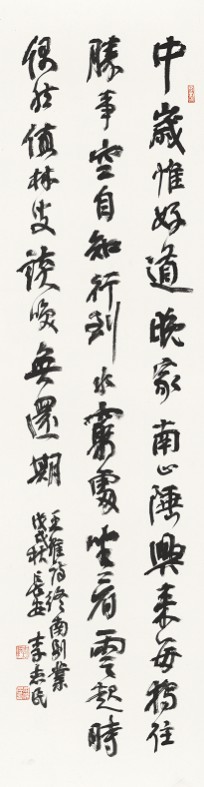 中歲惟好道晚家南山陲興來每獨往
勝事空自知行到水窮處坐看雲起時
偶然值林叟談咲無還期
王維詩終南別業
戊戌秋長安李